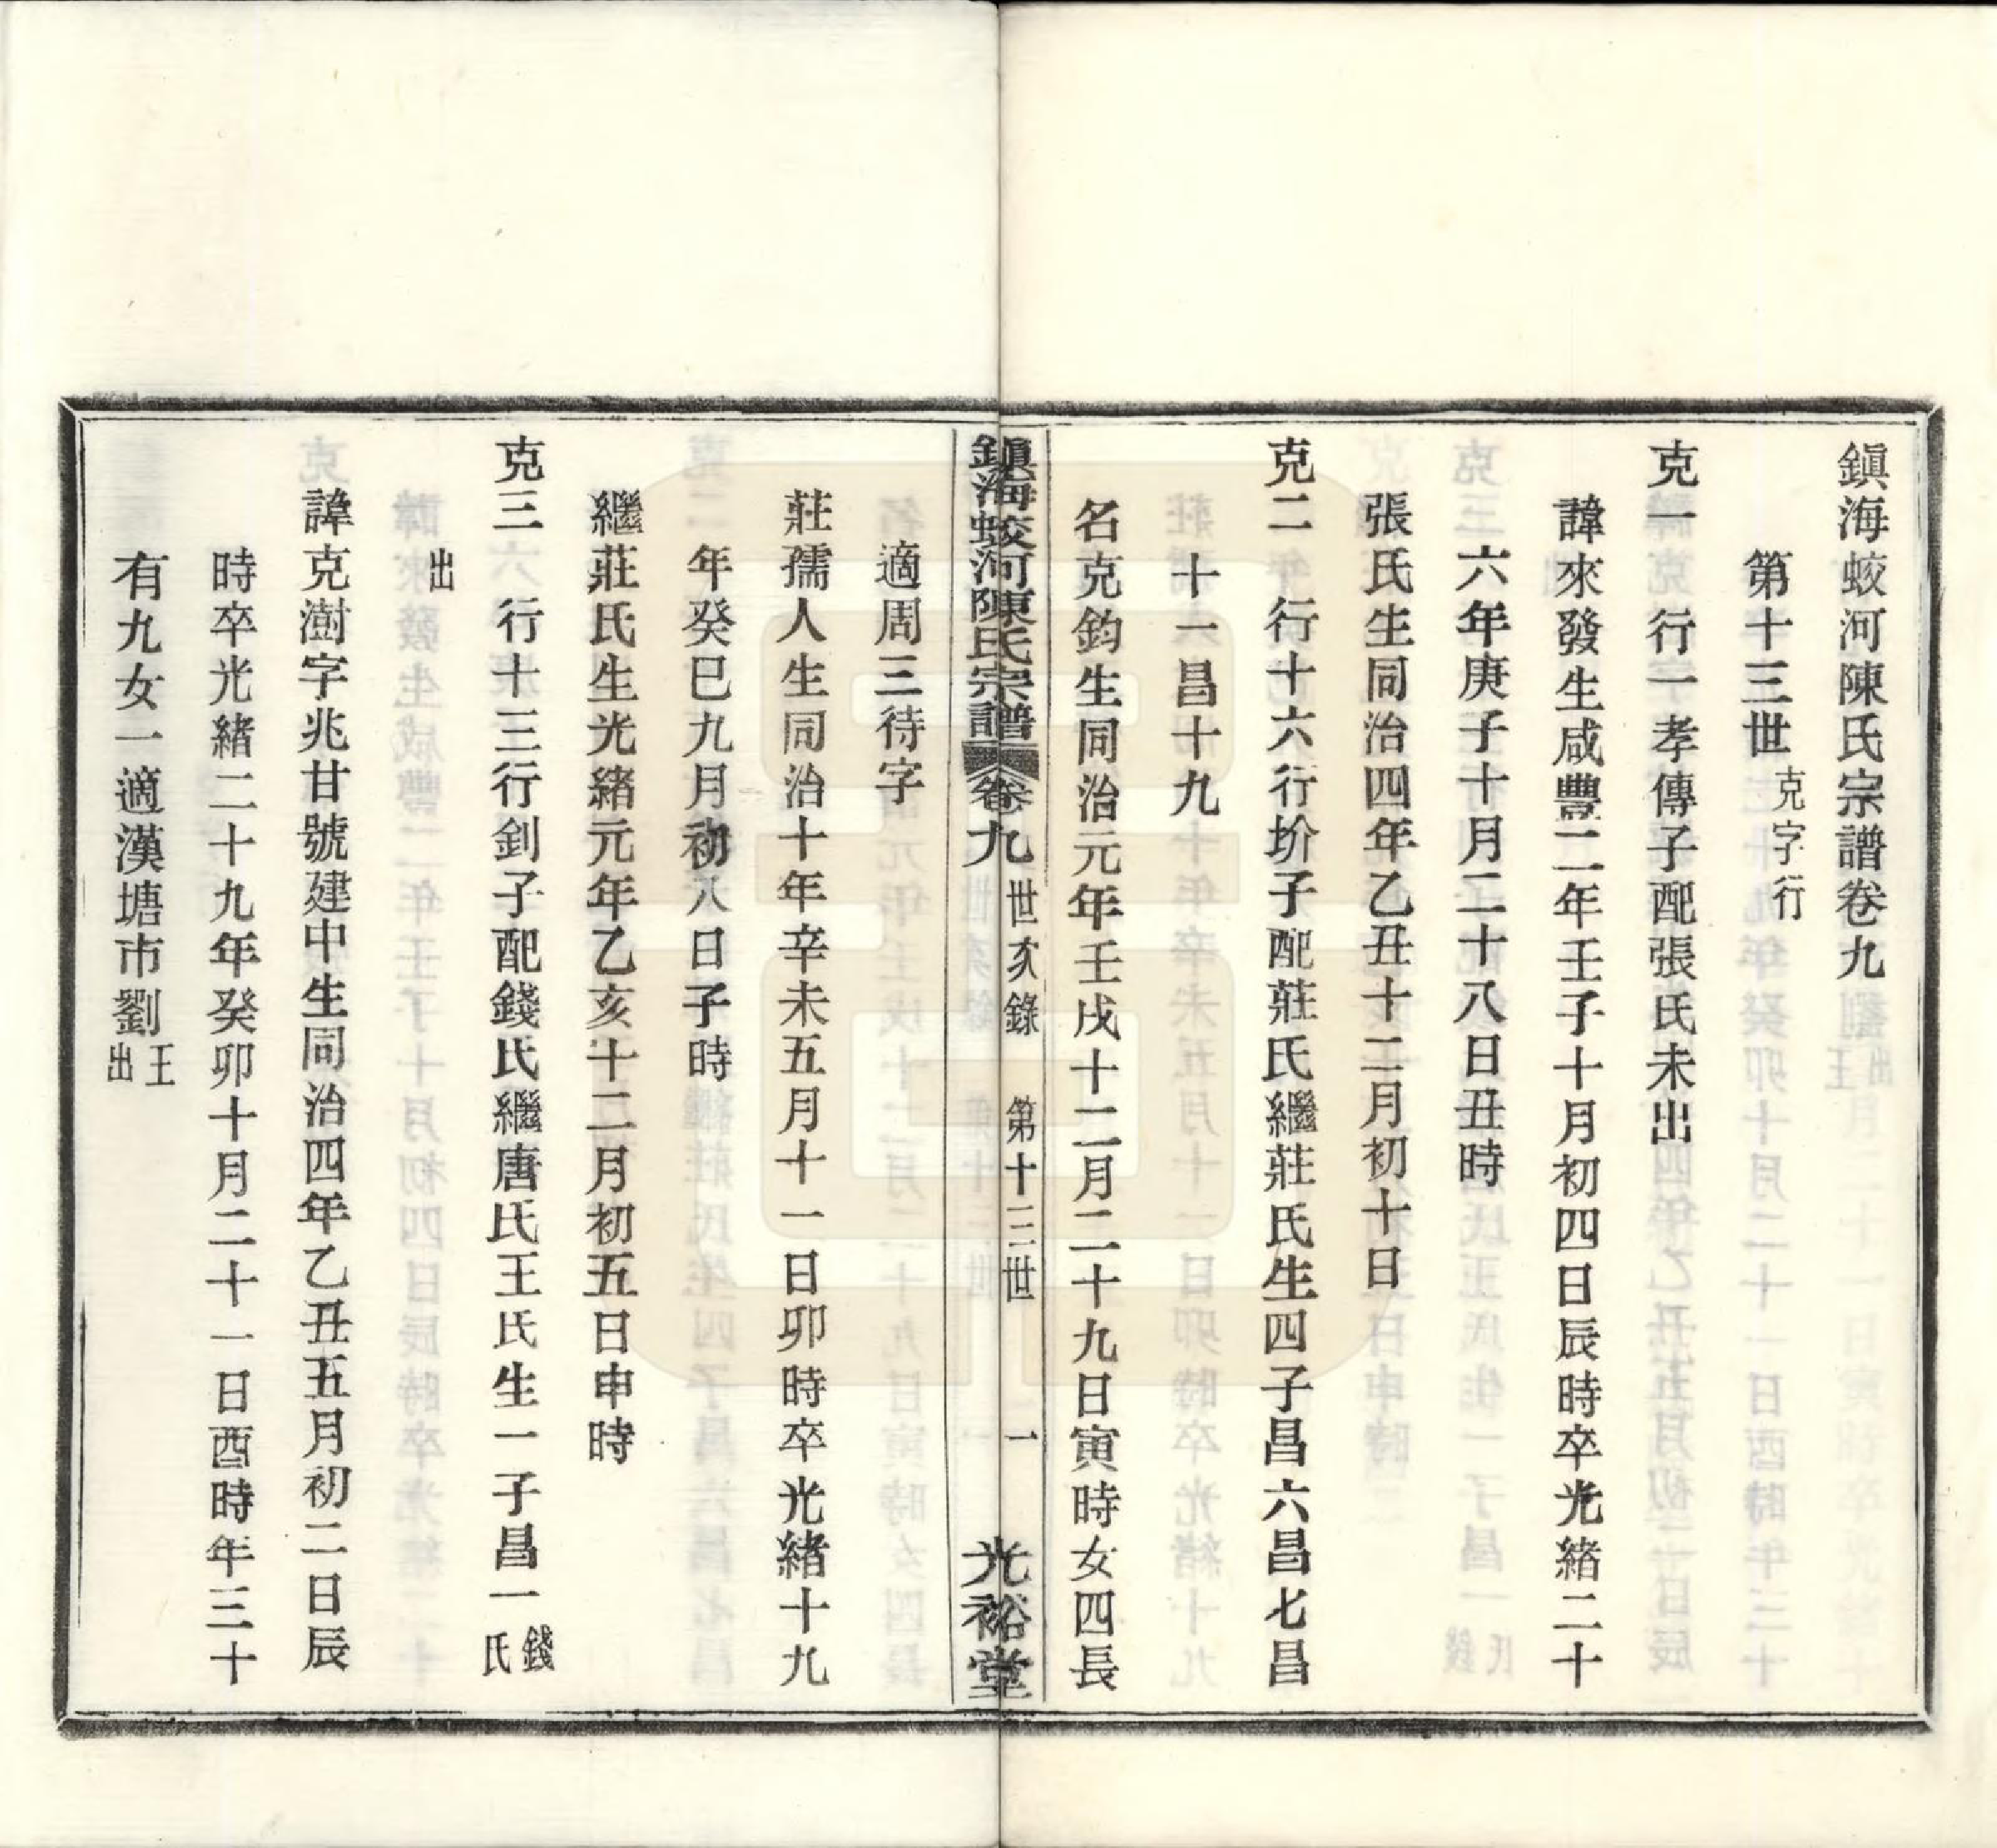 鎮海蛟河陳氏宗譜卷九
第十三世克字行
克一　行一孝傳子配張氏未出
諱來發生咸豐二年壬子十月初四日辰時卒光緒二十
六年庚子十月二十八日丑時
張氏生同治四年乙丑十二月初十日
克二　行十六行圿子配莊氏繼莊氏生四子昌六昌七昌
十一昌十九
名克鈞生同治元年壬戌十二月二十九日寅時女四長
鎮海蛟河陳氏宗譜　卷九　世系錄　第十三世　一　光裕堂
適周三待字
莊孺人生同治十年辛未五月十一日卯時卒光緒十九
年癸巳九月初八日子時
繼莊氏生光緒元年乙亥十二月初五日申時
克三　行十三行釗子配錢氏繼唐氏王氏生一子昌一錢氏
出
諱克澍字兆甘號建中生同治四年乙丑五月初二日辰
時卒光緒二十九年癸卯十月二十一日酉時年三十
有九女一適漢塘市劉王出